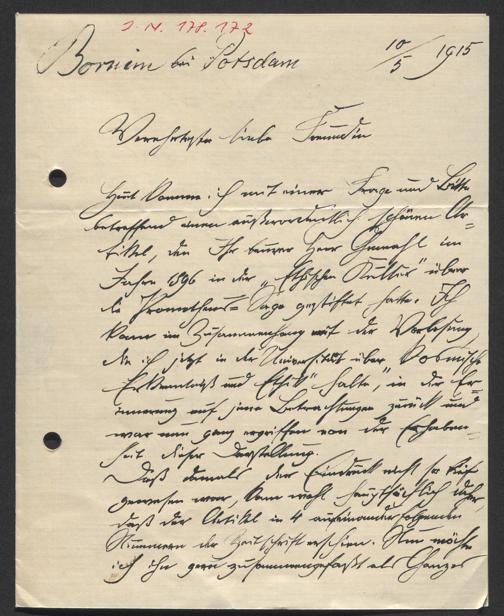 I. N. 178.172
Bornim bei Potsdam 10/5 1915
Verehrteste liebe Freundin
Heut komme ich mit einer Frage und Bitte
betreffend einen außerordentlich schönen Ar-
tikel, den Ihr teurer Herr Gemahl im
Jahre 1896 in der „Ethischen Kultur" über
die Prometheus-Sage gestiftet hatte. Ich
kam im Zusammenhang mit der Vorlesung,
die ich jetzt in der Universität über „Kosmische
Erkenntniß und Ethik" halte, in der Er-
innerung auf jene Betrachtungen zurück und
war nun ganz ergriffen von der Erhaben-
heit dieser Darstellung.
Daß damals der Eindruck nicht so tief
gewesen war, kam wohl hauptsächlich daher,
daß der Artikel in 4 aufeinanderfolgenden
Nummern der Zeitschrift erschien. Nun möchte
ich ihn gern zusammengefaßt als Ganzes